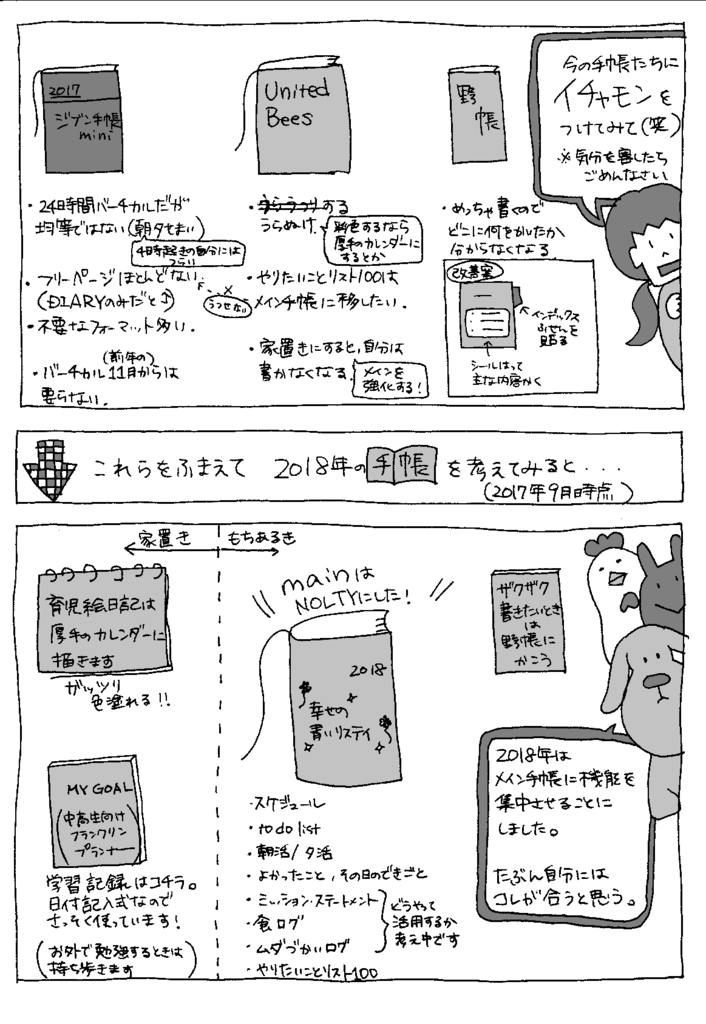 今の手帳たちに
イチャモンを
つけてみて(笑)
※気分を害したら
ごめんなさい
2017
ジブン手帳
mini
・24時間バーチカルだが
均等ではない(朝夕せまい)
4時起きの自分には
つらい
・フリーページほとんどない。
(DIARYのみだと♪)
・不要なフォーマット多い。
(前年の)
・バーチカル11月からは
要らない.
United
Bees
うらぬけ.
彩色するなら
厚手のカレンダーに
するとか
・やりたいことリスト100は
メイン手帳に移したい.
うつせない
・家置きにすると,自分は
書かなくなる.
メインを
強化する!
野
帳
・めっちゃ書くので
どこに何をかいたか
分からなくなる
改善案
インデックス
ふせんを
貼る
シールはって
主な内容かく
これらをふまえて 2018年の手帳を考えてみると・・・
(2017年9月時点)
家置き
もちあるき
育児絵日記は
厚手のカレンダーに
描きます
ガッツリ
色塗れる!!
MY GOAL
(中高生向け
フランクリン
プランナー)
学習記録はコチラ。
日付記入式なので
さっそく使っています!
(お外で勉強するときは
持ち歩きます)
mainは
NOLTYにした!
2018
幸せの
青いリスティ
・スケジュール
・to do list
・朝活/夕活
・よかったこと,その日のできごと
・ミッション・ステートメント
・食ログ
・ムダづかいログ
どうやって
活用するか
考え中です
・やりたいことリスト100
ザクザク
書きたいとき
は
野帳に
かこう
2018年は
メイン手帳に機能を
集中させることに
しました。
たぶん自分には
コレが合うと思う。